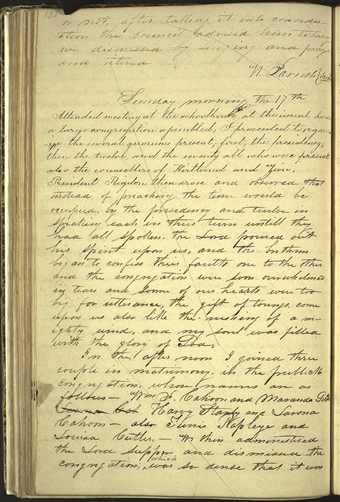 or not, after taking it into consider-
ation the council advised him to tarry
we dismissed by singing and prayer
and retired
W. Parrish Clerk
Sunday morning the 17th
Attended meeting at the schoolhouse at the usual hour
a large congregation assembled, I proceeded to organi-
ze the several quorums present, first, the presidency,
then the twelve, and the seventy all who were present
also the counsellors of Kirtland and Zion.
President Rigdon then arose and observed that
instead of preaching the time would be
occupied, by the presidency and twelve in
speaking each in their turn untill they
had all spoken. the Lord poured out
his spirit upon us, and the brethren
began to confess their faults one to the other
and the congregation were soon overwhelmed
in tears and some of our hearts were too
big for utterance, the gift of toungs, come
upon us also like the rushing of a mi-
ghty wind, and my soul was filled
with the glory of God.
In the after noon I joined three
couple in matrimony, in the publick
congregation, whose names are as
follows— Wm F. Cahoon and Maranda
Harvy Stanly and Larona
Cahoon— also Tunis Rapleye and
Louisa Cutler,— We then administered
the Lord supper and dismissed the
congregation, which was so dense that it was